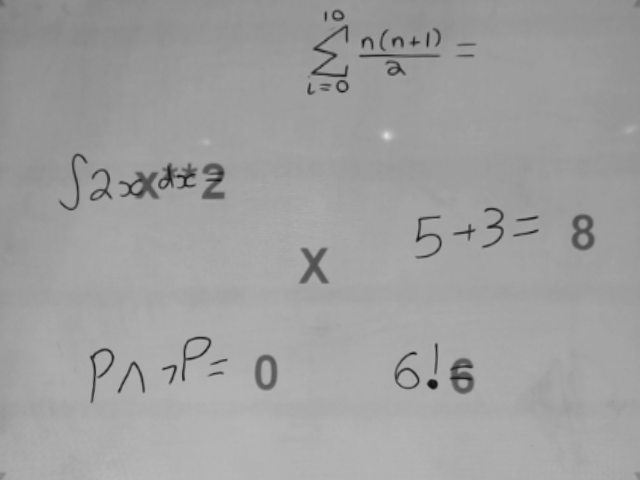 10
∑ n(n+1)/2 =
i=0
∫2x dx =
x**2
5+3= 8
X
P∧¬P= 0
6! =
6